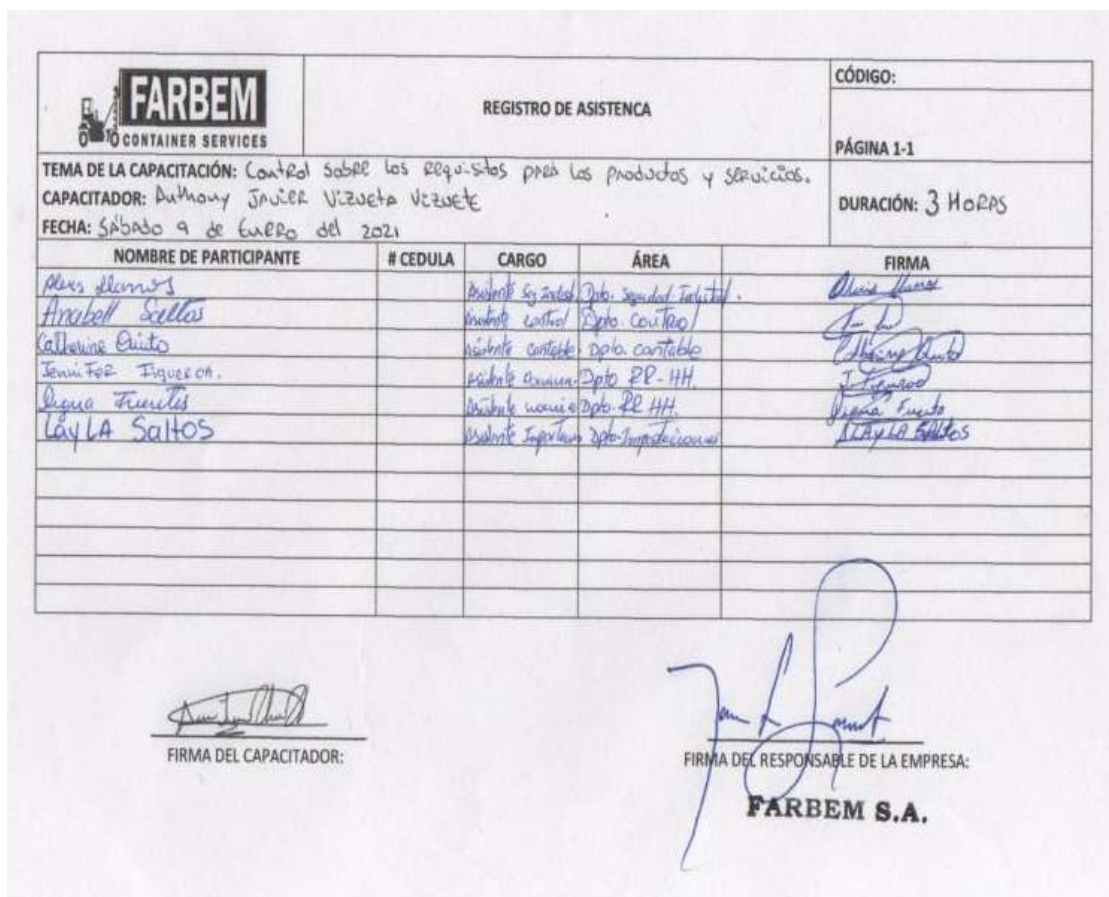 FARBEM
CONTAINER SERVICES
REGISTRO DE ASISTENCA
CÓDIGO:
PÁGINA 1-1
TEMA DE LA CAPACITACIÓN: Control sobre los requisitos para los productos y servicios.
CAPACITADOR: Anthony Javier Vizueta Vizuete
DURACIÓN: 3 HORAS
FECHA: Sábado 9 de Enero del 2021
NOMBRE DE PARTICIPANTE # CEDULA CARGO ÁREA FIRMA
Llanos Asistente Dpto. Seguridad
Anabell Saltos Asistente control Dpto. Control
Catherine Quinto Asistente contable Dpto. contable Quinto
Jennifer Figueroa. Asistente Dpto RR-HH.
Digna Fuentes Asistente Dpto. RR HH. Digna
Layla Saltos Asistente Dpto. Importaciones LAYLA SALTOS
FIRMA DEL CAPACITADOR:
FIRMA DEL RESPONSABLE DE LA EMPRESA:
FARBEM S.A.